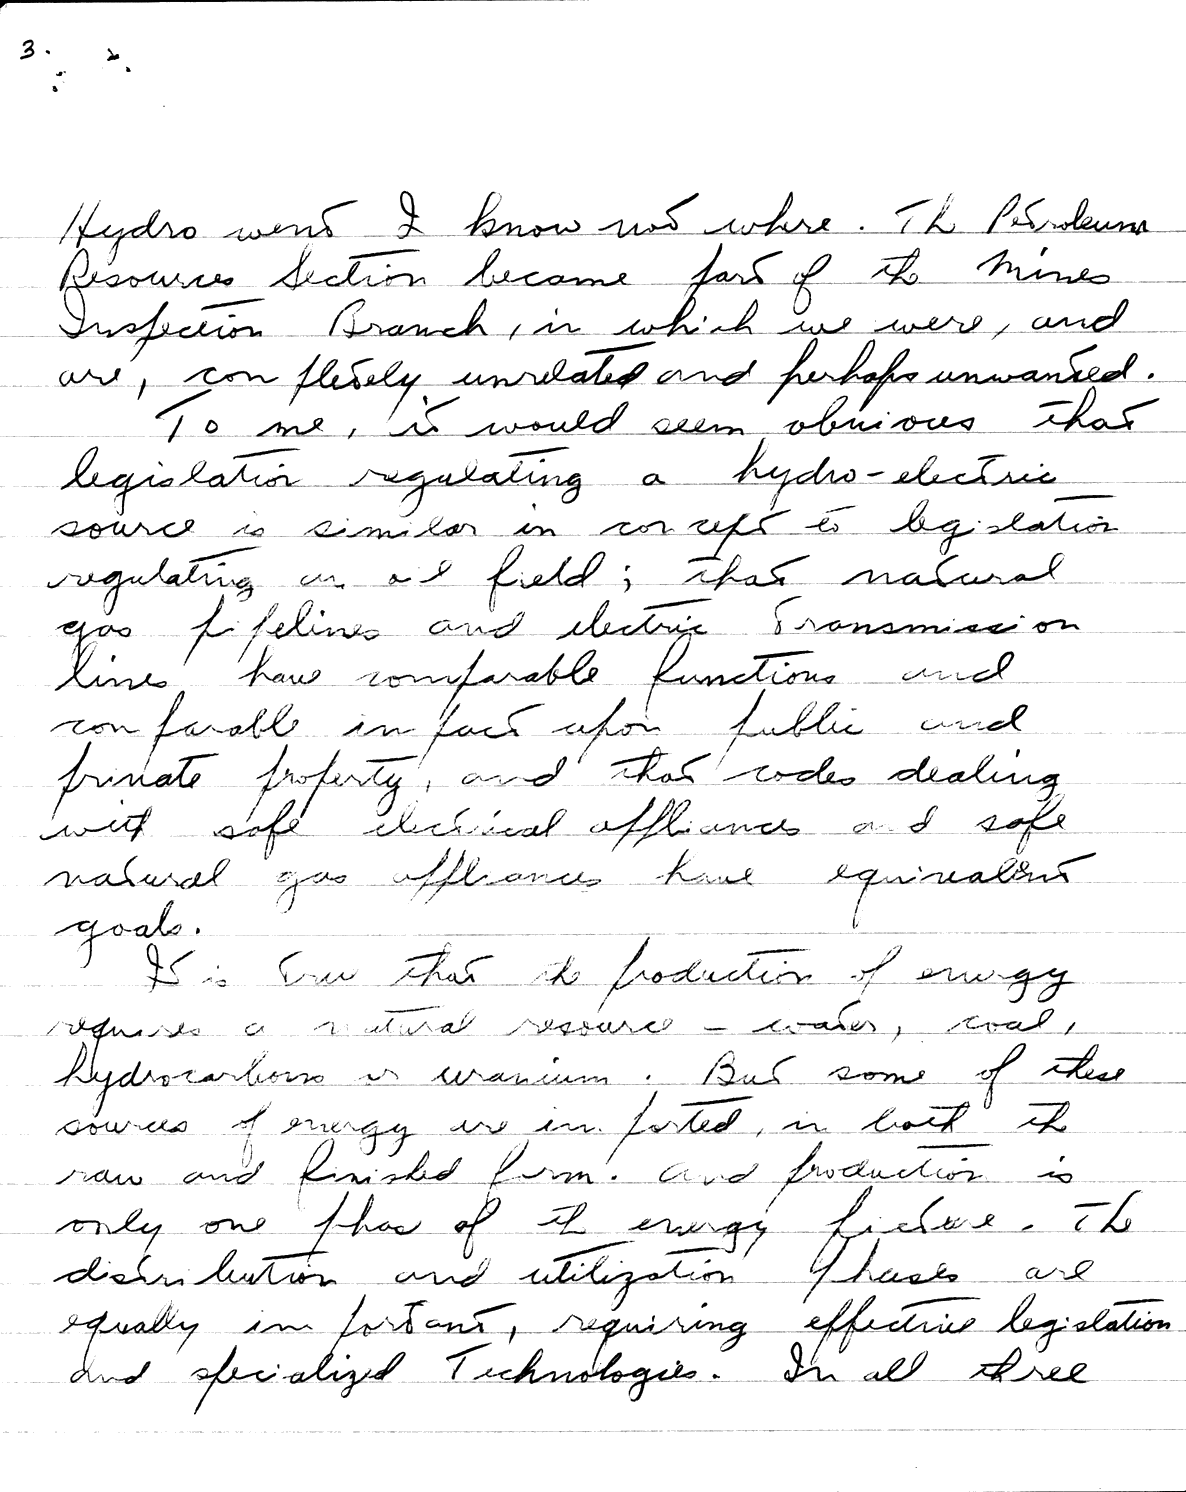 3.
Hydro went I know not where. The Petroleum
Resources Section became part of the Mines
Inspection Branch, in which we were, and
are, completely unrelated and perhaps unwanted.
To me, it would seem obvious that
legislation regulating a hydro-electric
source is similar in concept to legislation
regulating an oil field; that natural
gas pipelines and electric transmission
lines have comparable functions and
comparable impact upon public and
private property, and that codes dealing
with safe electrical appliances and safe
natural gas appliances have equivalent
goals.
It is true that the production of energy
requires a natural resource - water, coal,
hydrocarbons or uranium. But some of these
sources of energy are imported, in both the
raw and finished form. And production is
only one phase of the energy picture. The
distribution and utilization phases are
equally important, requiring effective legislation
and specialized technologies. In all three